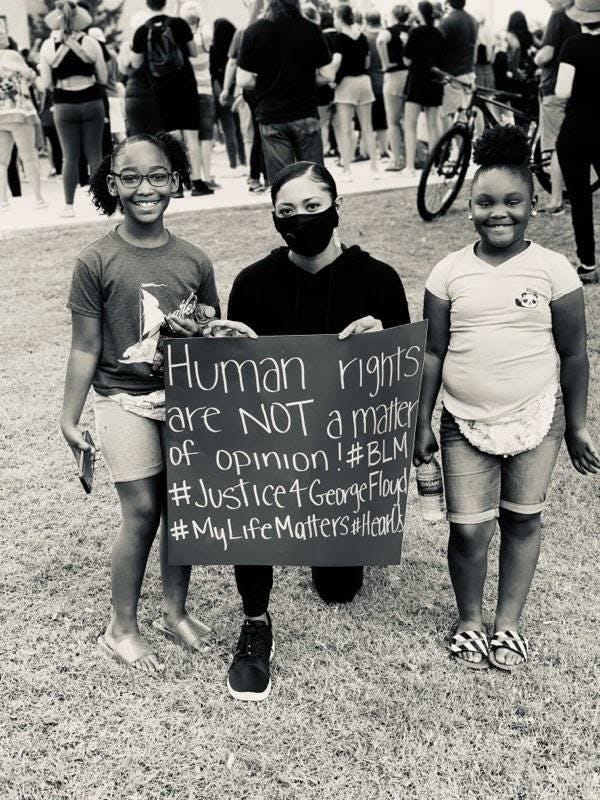 Human rights
are NOT a matter
of opinion! #BLM
#Justice4GeorgeFloyd
#MyLifeMatters #HearUs